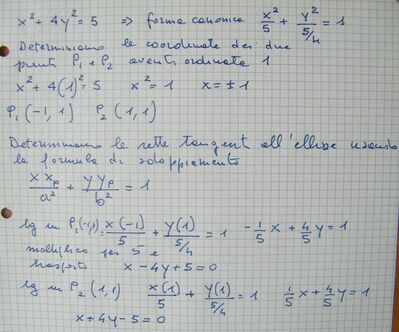 x² + 4y² = 5 ⇒ forma canonica x²/5 + y²/5/4 = 1
Determiniamo le coordinate dei due
punti P₁ e P₂ aventi ordinata 1
x² + 4(1)² = 5 x² = 1 x = ±1
P₁(-1, 1) P₂(1, 1)
Determiniamo le rette tangenti all'ellisse usando
la formula di sdoppiamento
x xₚ/a² + y yₚ/b² = 1
tg in P₁(-1,1): x(-1)/5 + y(1)/5/4 = 1 -1/5 x + 4/5 y = 1
moltiplico per 5 e
trasporto x - 4y + 5 = 0
tg in P₂(1,1) x(1)/5 + y(1)/5/4 = 1 1/5 x + 4/5 y = 1
x + 4y - 5 = 0